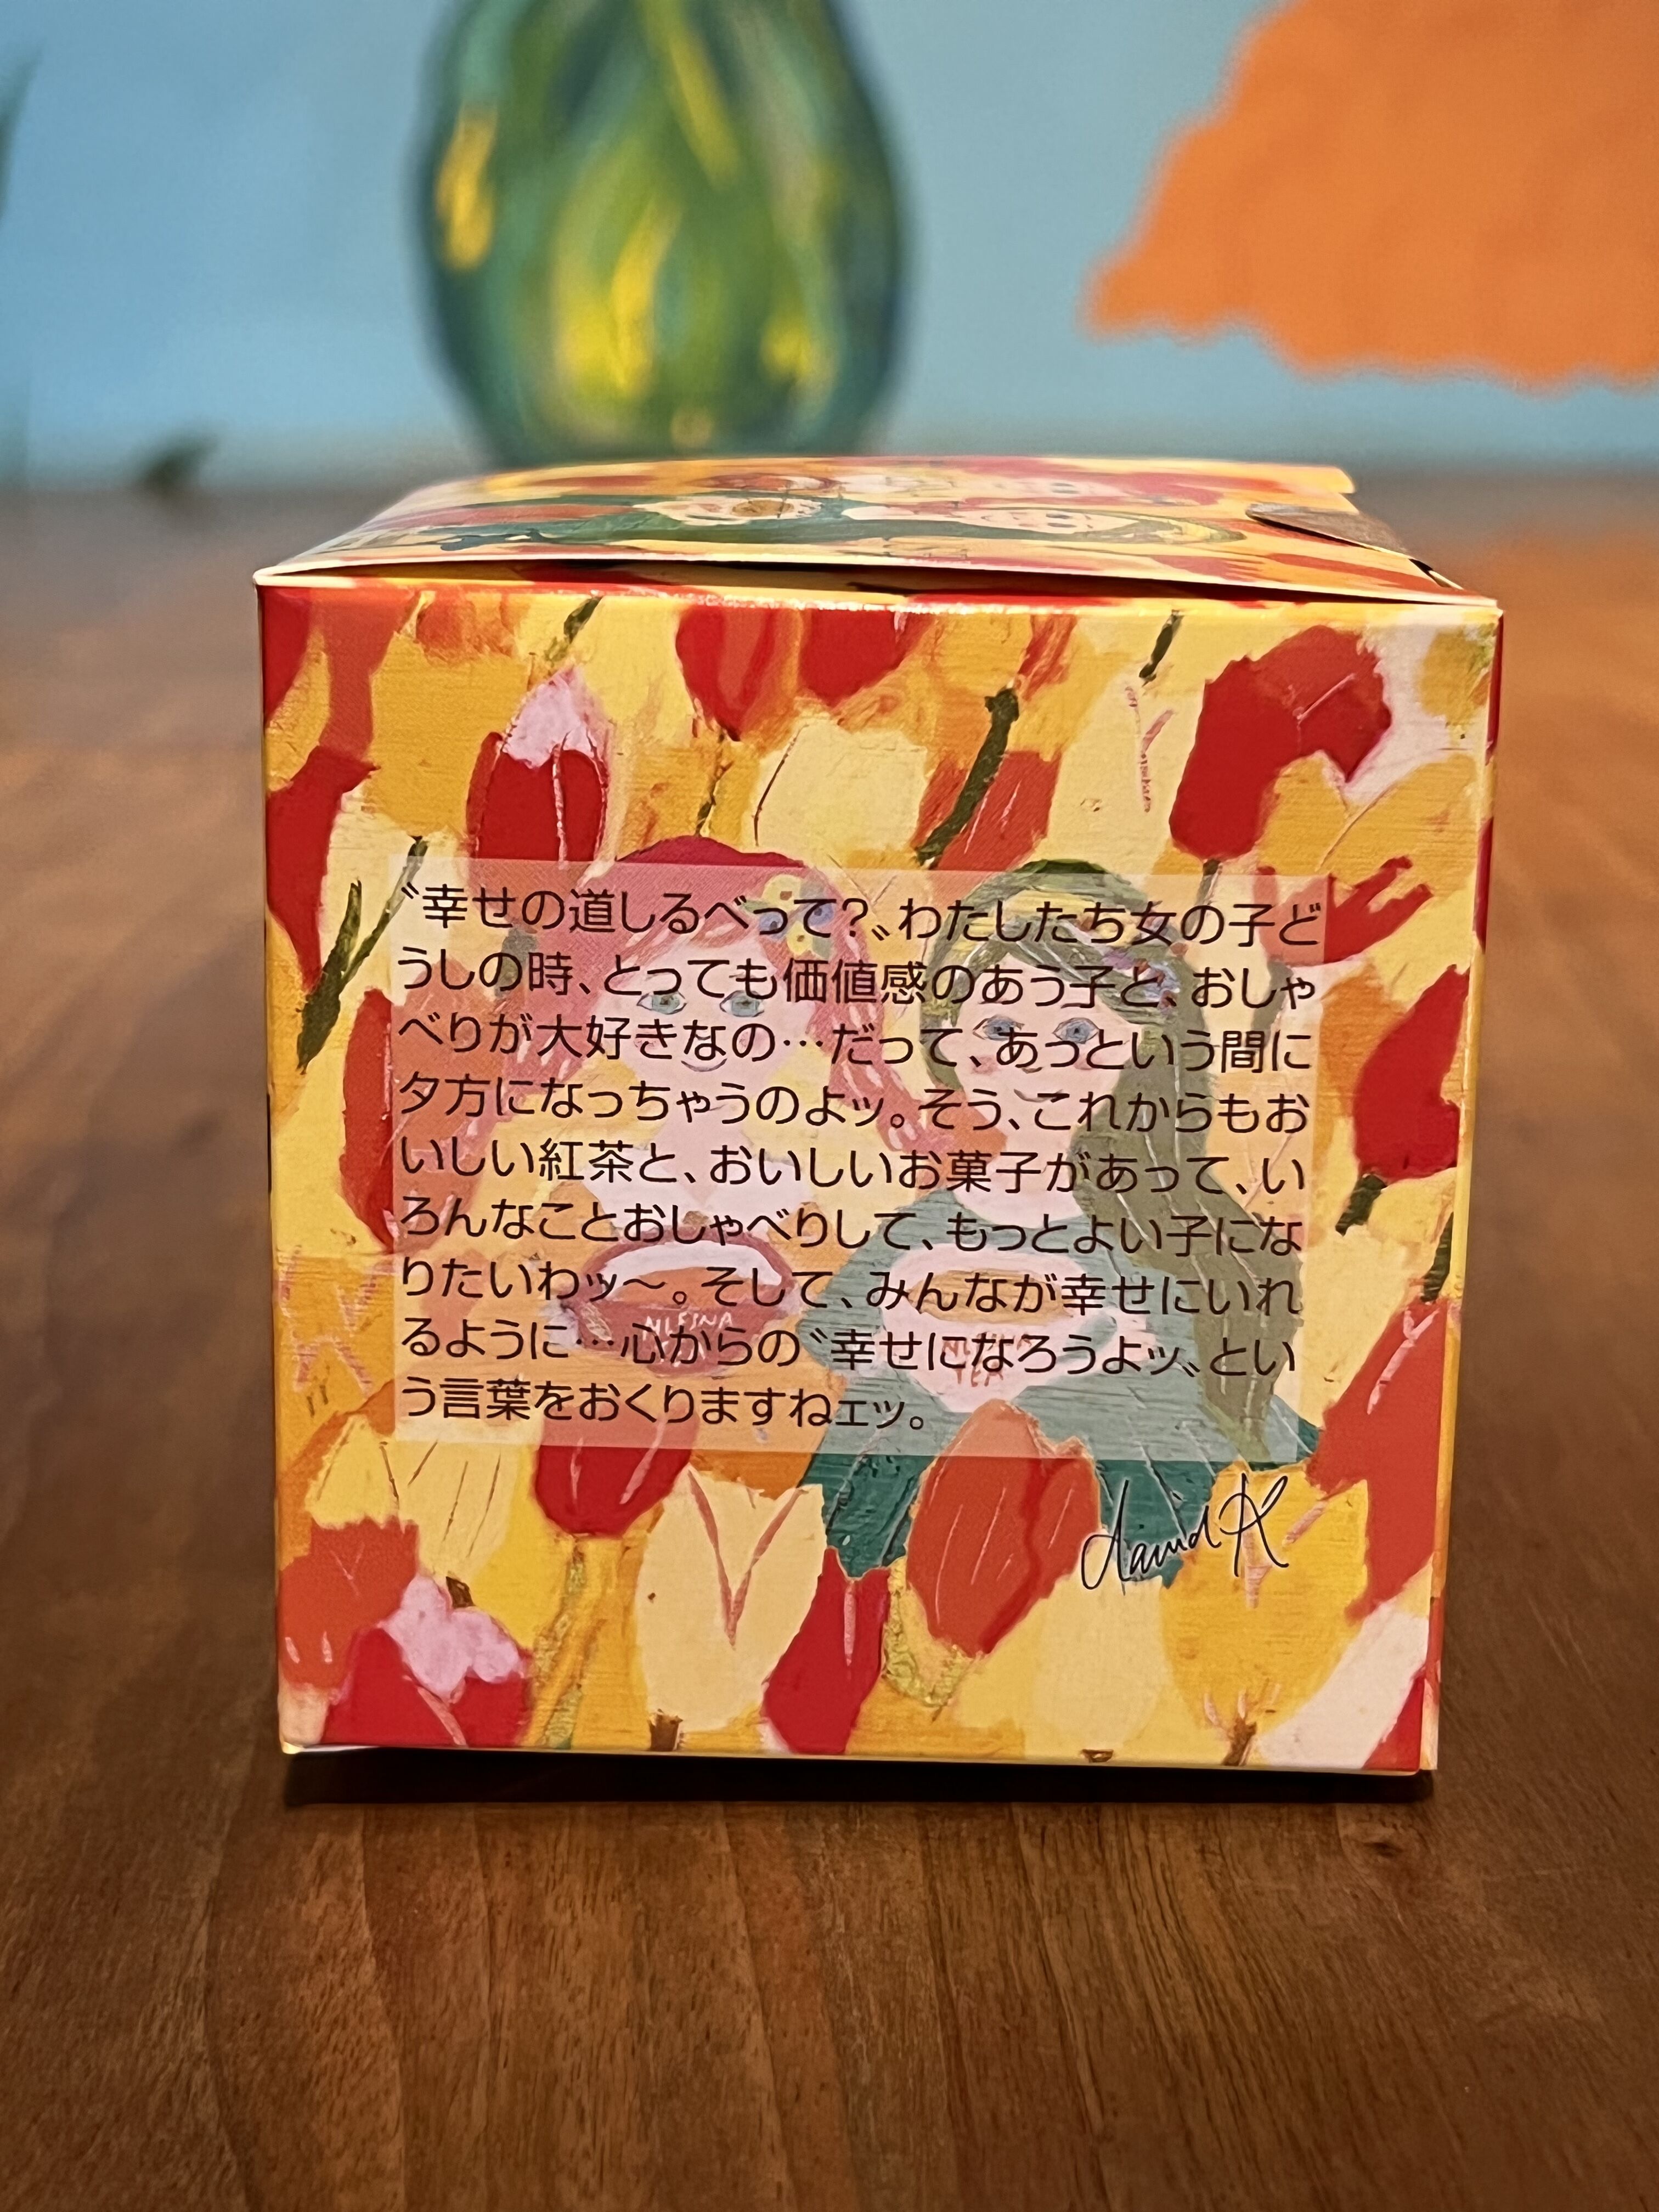 〝幸せの道しるべって?〟わたしたち女の子ど
うしの時、とっても価値感のあう子と、おしゃ
べりが大好きなの…だって、あっという間に
夕方になっちゃうのよッ。そう、これからもお
いしい紅茶と、おいしいお菓子があって、い
ろんなことおしゃべりして、もっとよい子にな
りたいわッ〜。そして、みんなが幸せにいれ
るように…心からの〝幸せになろうよッ〟とい
う言葉をおくりますねェッ。
TEA
David K